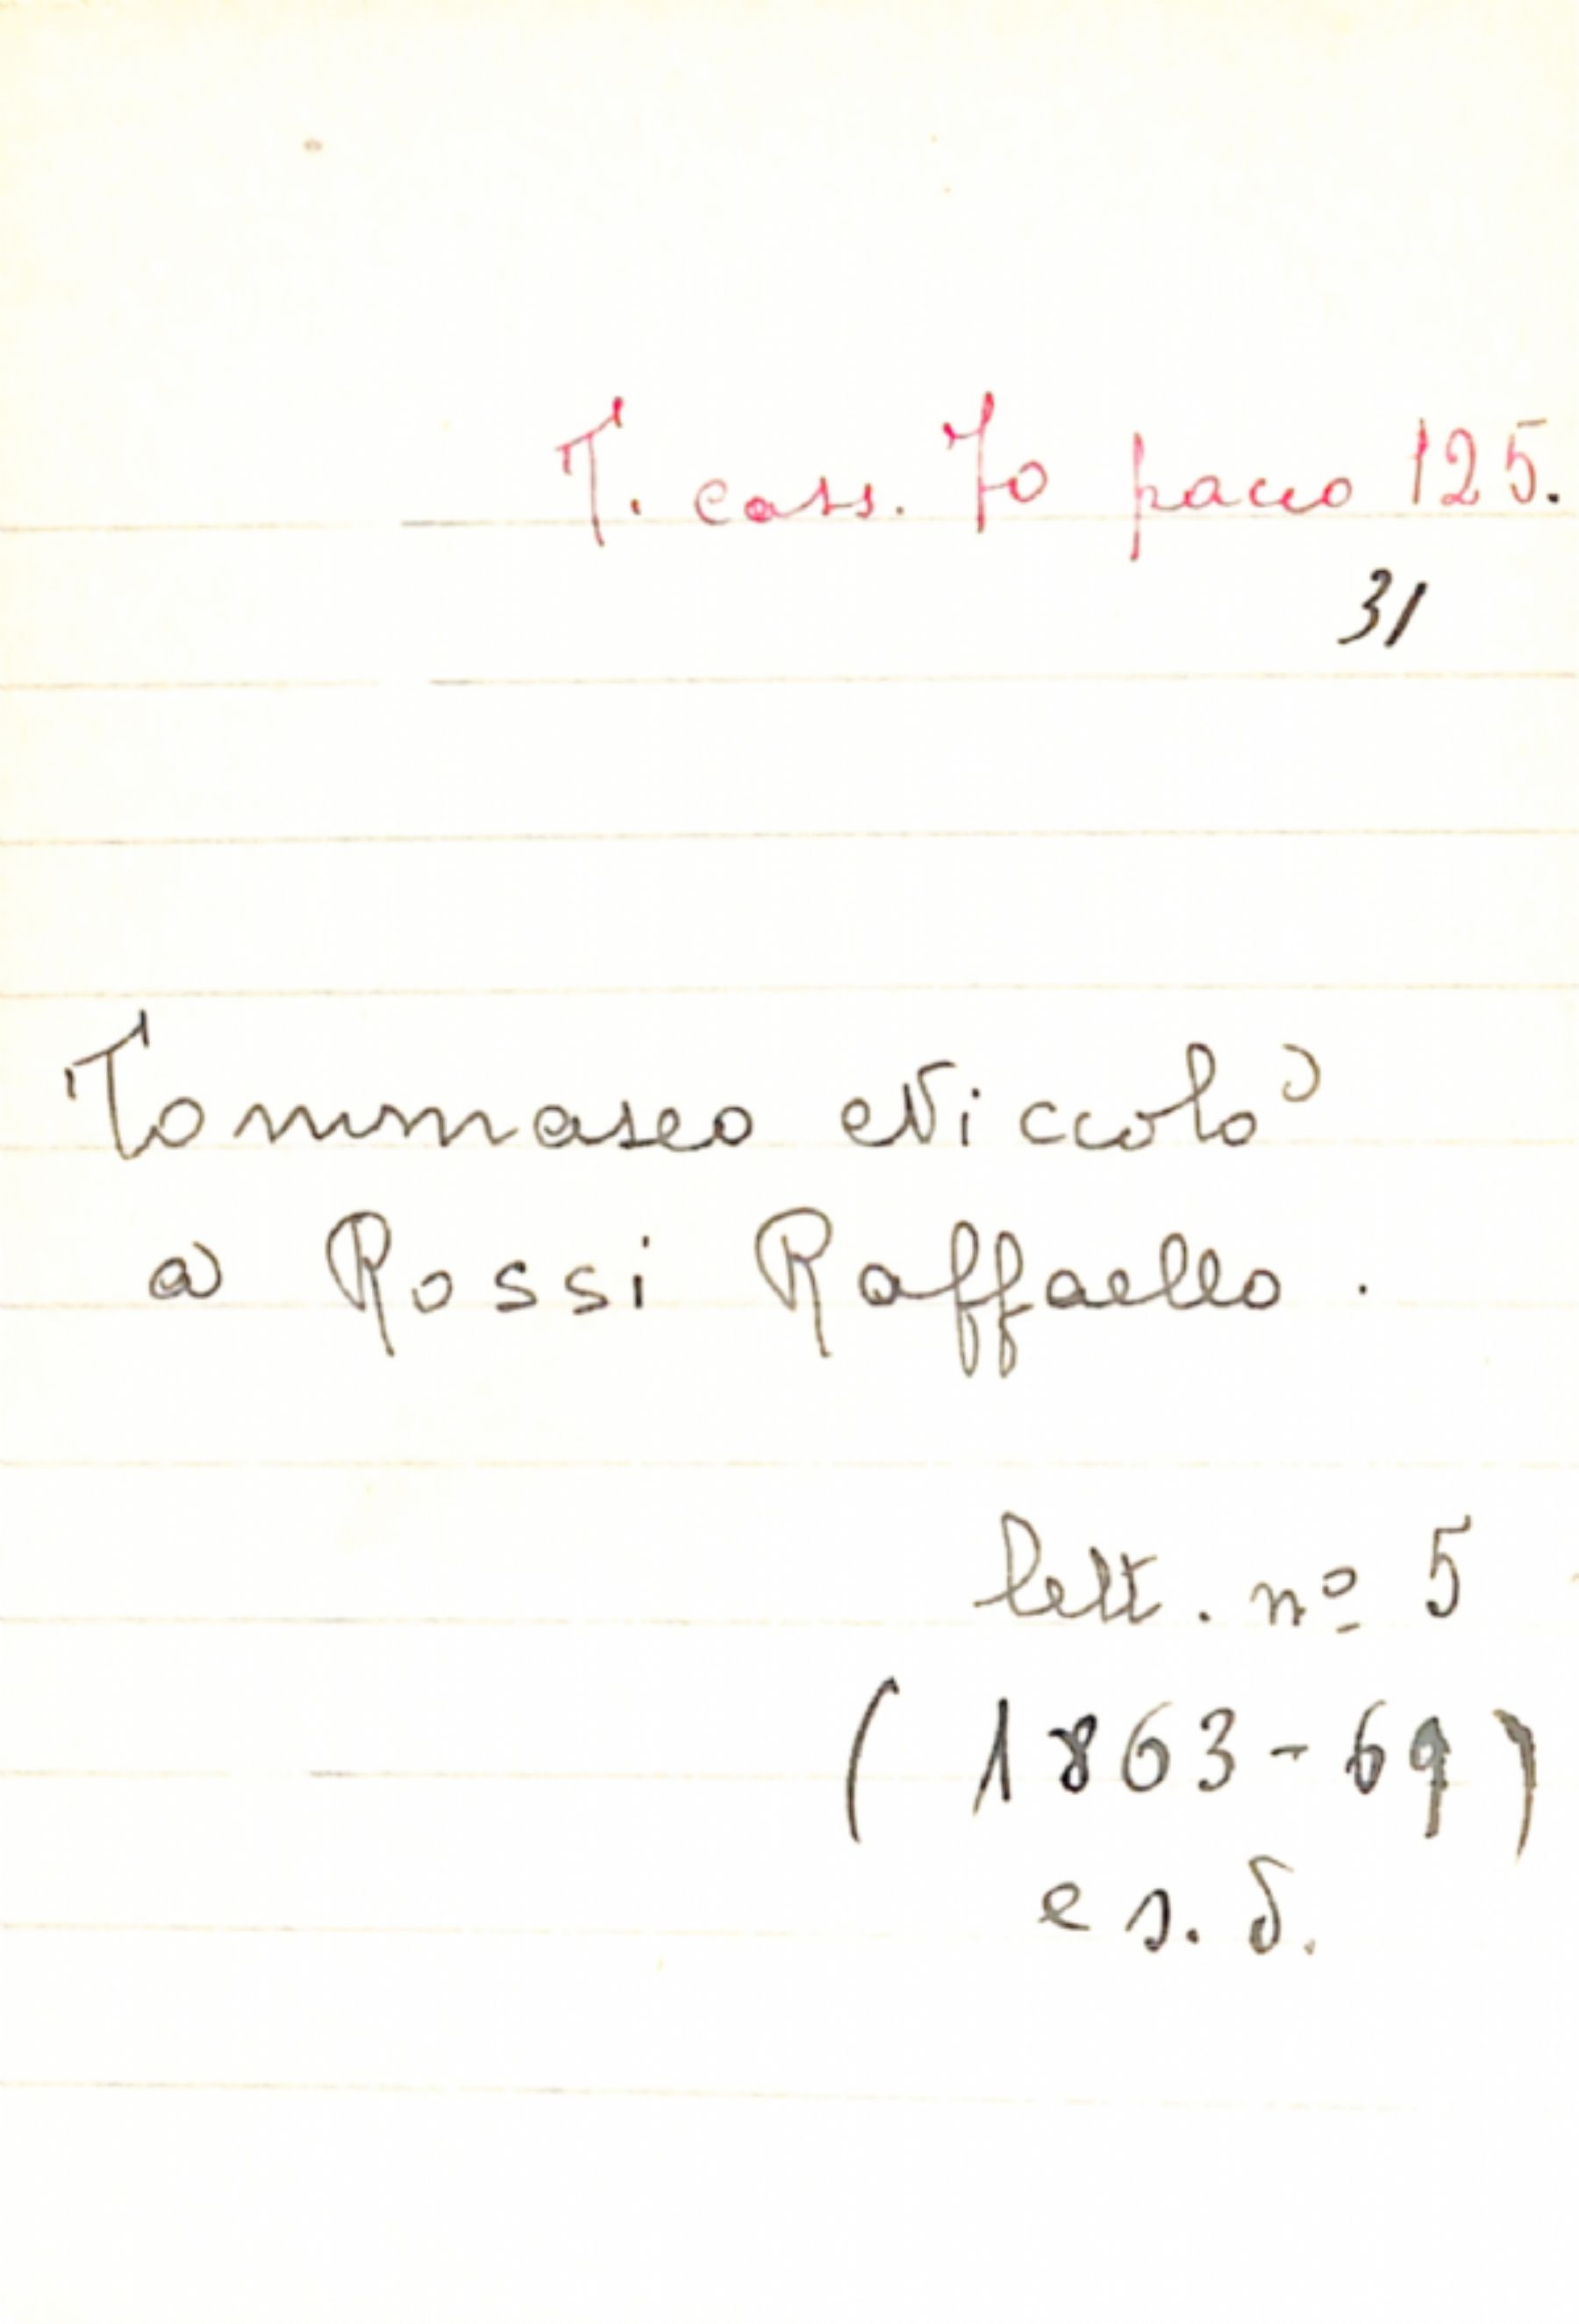 T. cass. 70 pacco 125.
31
Tommaseo Niccolò
a Rossi Raffaello.
lett. nº 5
(1863-69)
e s. d.